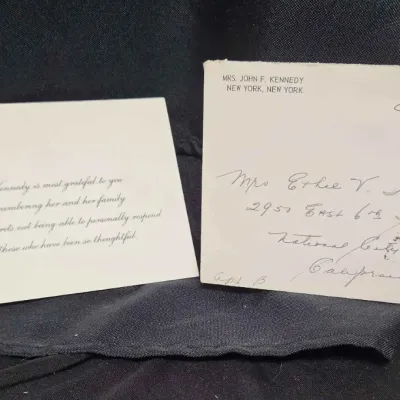 Kennedy is most grateful to you
remembering her and her family
not being able to personally respond
those who have been so thoughtful.
MRS. JOHN F. KENNEDY
NEW YORK, NEW YORK
Mrs Ethel V.
2950 East 6th
National City
California
Apt B